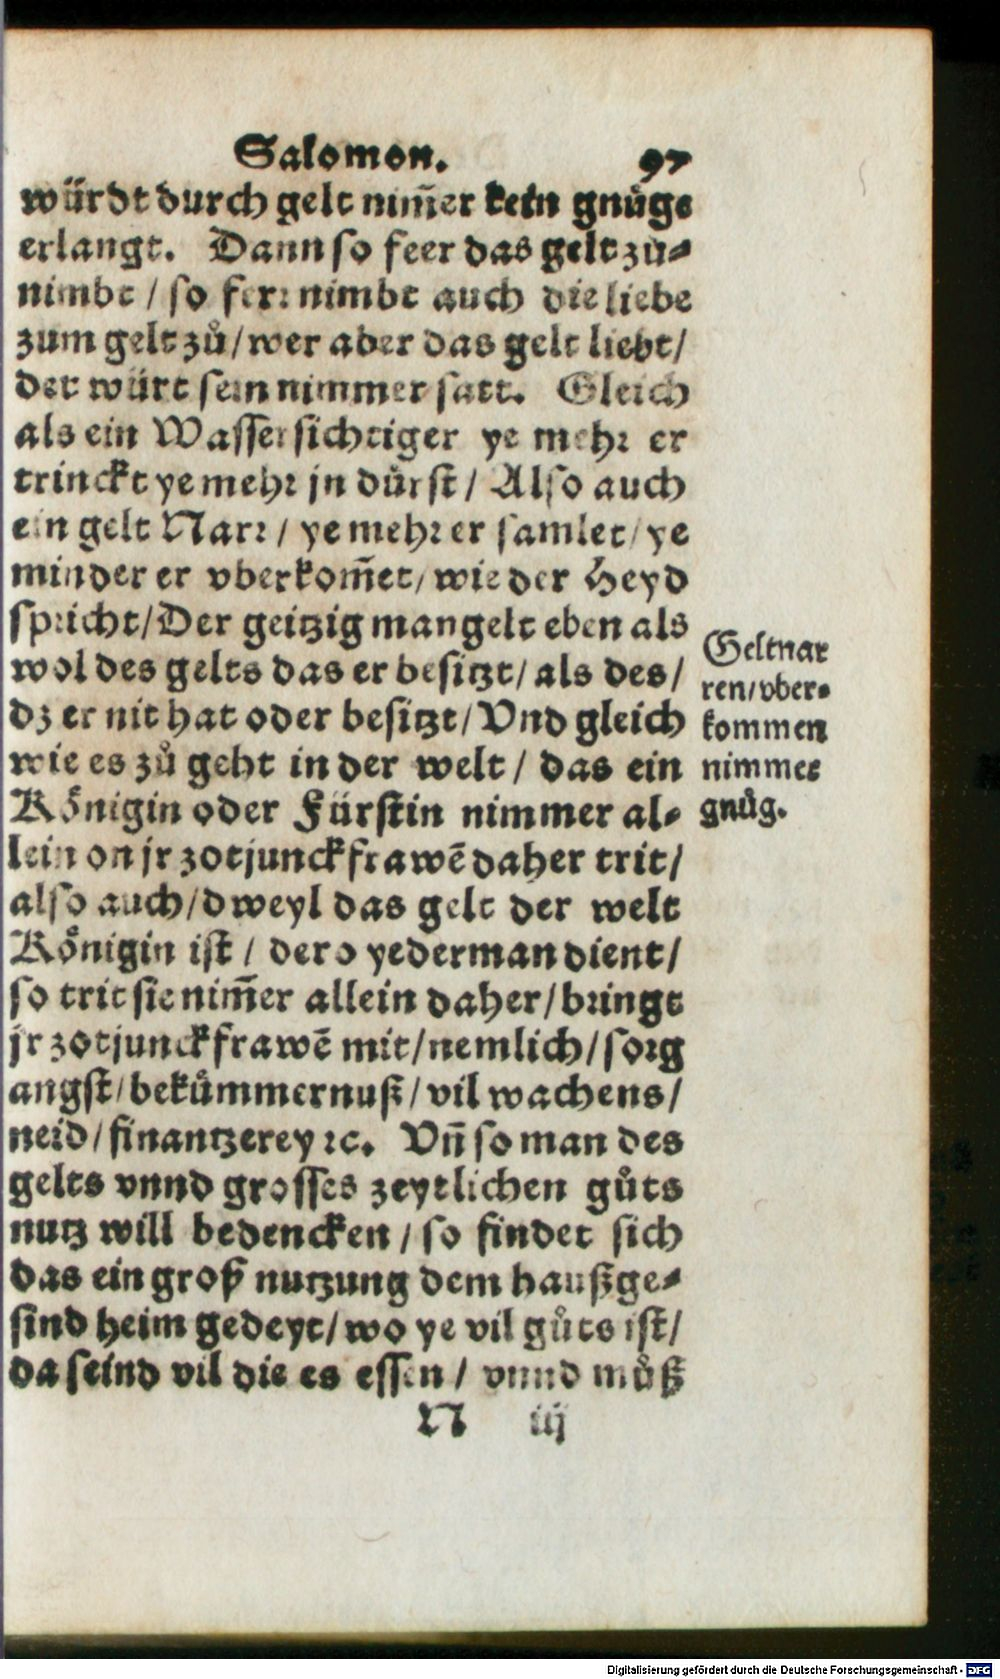 Salomon. 97
würdt durch gelt nim̃er kein gnůge
erlangt. Dann so feer das gelt zů-
nimbt / so ferr nimbt auch die liebe
zum gelt zů / wer aber das gelt liebt /
der würt sein nimmer satt. Gleich
als ein Wassersichtiger ye mehr er
trinckt ye mehr jn dürst / Also auch
ein gelt Narr / ye mehr er samlet / ye
minder er vberkom̃et / wie der Heyd
spricht / Der geitzig mangelt eben als
wol des gelts das er besitzt / als des /
dz er nit hat oder besitzt / Vnd gleich
wie es zů geht in der welt / das ein
Königin oder Fürstin nimmer al-
lein on jr zotjunckfrawẽ daher trit /
also auch / dweyl das gelt der welt
Königin ist / dero yederman dient /
so trit sie nim̃er allein daher / bringt
jr zotjunckfrawẽ mit / nemlich / sorg
angst / bekümmernuß / vil wachens /
neid / finantzerey ꝛc. Vñ so man des
gelts vnnd grosses zeytlichen gůts
nutz will bedencken / so findet sich
das ein groß nutzung dem haußge-
sind heim gedeyt / wo ye vil gůts ist /
da seind vil die es essen / vnnd můß
N iij
Geltnar
ren / vber-
kommen
nimmer
gnůg.
Digitalisierung gefördert durch die Deutsche Forschungsgemeinschaft - DFG